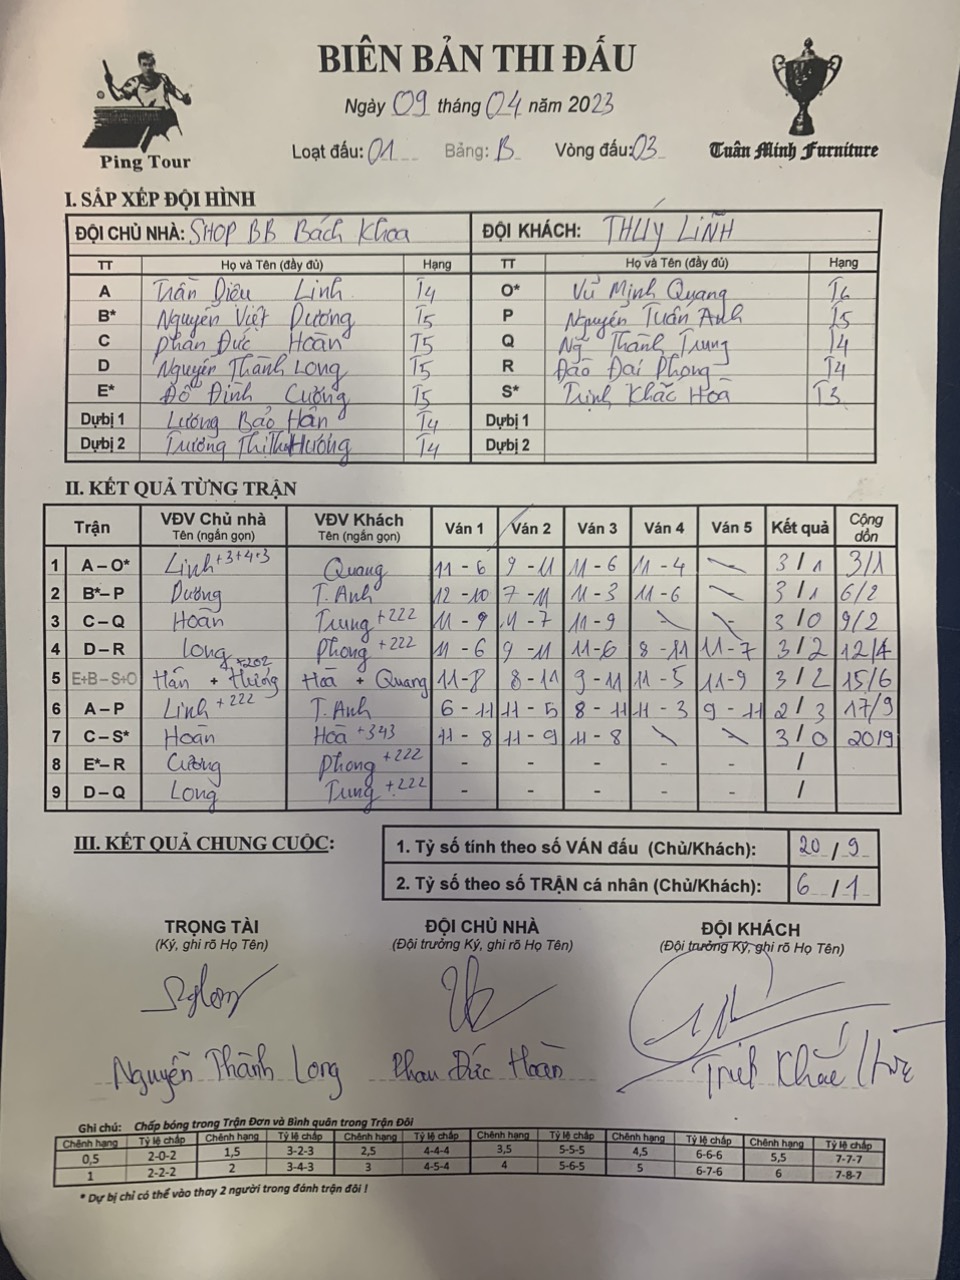 BIÊN BẢN THI ĐẤU
Ngày 09 tháng 04 năm 2023
Ping Tour
Loạt đấu: 01 Bảng: B Vòng đấu: 03
Tuân Minh Furniture
I. SẮP XẾP ĐỘI HÌNH
ĐỘI CHỦ NHÀ: SHOP BB Bách Khoa ĐỘI KHÁCH: THUỲ LINH
TT Họ và Tên (đầy đủ) Hạng TT Họ và Tên (đầy đủ) Hạng
A Trần Diệu Linh T4 O* Vũ Minh Quang T6
B* Nguyễn Việt Dương T5 P Nguyễn Tuấn Anh T5
C Phan Đức Hoàn T5 Q Ng Thành Trung T4
D Nguyễn Thành Long T5 R Đào Đại Phong T4
E* Đỗ Đình Cường T5 S* Trịnh Khắc Hoà T3
Dựbị 1 Lương Bảo Hân T4 Dựbị 1
Dựbị 2 Trương Thị Thu Hương T4 Dựbị 2
II. KẾT QUẢ TỪNG TRẬN
Trận VĐV Chủ nhà Tên (ngắn gọn) VĐV Khách Tên (ngắn gọn) Ván 1 Ván 2 Ván 3 Ván 4 Ván 5 Kết quả Cộng dồn
1 A – O* Linh +3+4+3 Quang 11 - 6 9 - 11 11 - 6 11 - 4 3 / 1 3/1
2 B* – P Dương T. Anh 12 - 10 7 - 11 11 - 3 11 - 6 3 / 1 6/2
3 C – Q Hoàn Trung +222 11 - 9 11 - 7 11 - 9 3 / 0 9/2
4 D – R Long Phong +222 11 - 6 9 - 11 11 - 6 8 - 11 11 - 7 3 / 2 12/4
5 E+B – S+O Hân + Hương +202 Hoà + Quang 11 - 8 8 - 11 9 - 11 11 - 5 11 - 9 3 / 2 15/6
6 A – P Linh +222 T. Anh 6 - 11 11 - 5 8 - 11 11 - 3 9 - 11 2 / 3 17/9
7 C – S* Hoàn Hoà +343 11 - 8 11 - 9 11 - 8 3 / 0 20/9
8 E* – R Cường Phong +222 - - - - - /
9 D – Q Long Trung +222 - - - - - /
III. KẾT QUẢ CHUNG CUỘC:
1. Tỷ số tính theo số VÁN đấu (Chủ/Khách): 20 / 9
2. Tỷ số theo số TRẬN cá nhân (Chủ/Khách): 6 / 1
TRỌNG TÀI ĐỘI CHỦ NHÀ ĐỘI KHÁCH
(Ký, ghi rõ Họ Tên) (Đội trưởng Ký, ghi rõ Họ Tên) (Đội trưởng Ký, ghi rõ Họ Tên)
Nguyễn Thành Long Phan Đức Hoàn Trịnh Khắc Hoà
Ghi chú: Chấp bóng trong Trận Đơn và Bình quân trong Trận Đôi
Chênh hạng Tỷ lệ chấp Chênh hạng Tỷ lệ chấp Chênh hạng Tỷ lệ chấp Chênh hạng Tỷ lệ chấp Chênh hạng Tỷ lệ chấp Chênh hạng Tỷ lệ chấp
0,5 2-0-2 1,5 3-2-3 2,5 4-4-4 3,5 5-5-5 4,5 6-6-6 5,5 7-7-7
1 2-2-2 2 3-4-3 3 4-5-4 4 5-6-5 5 6-7-6 6 7-8-7
* Dự bị chỉ có thể vào thay 2 người trong đánh trận đôi !